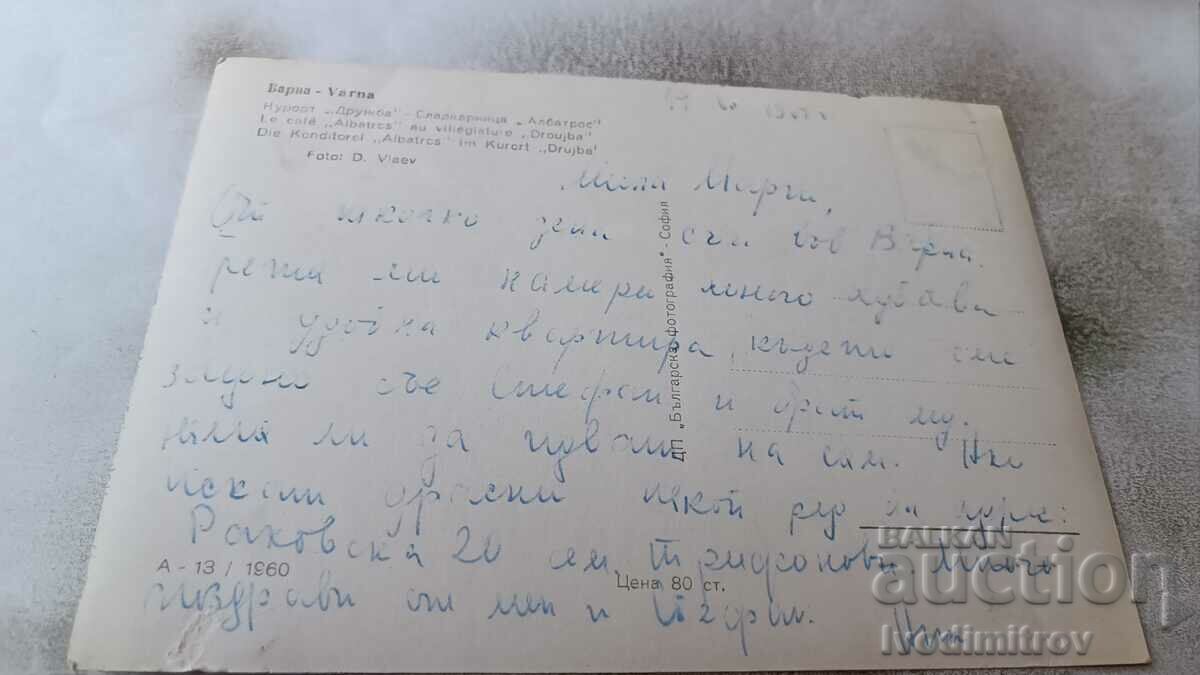 Варна - Varna
Курорт „Дружба" - Сладкарница „Албатрос"
Le café „Albatros" au villegiature „Droujba"
Die Konditorei „Albatros" im Kurort „Drujba"
Foto: D. Vlaev
Мила Марги,
От няколко дена съм във Варна.
ми намери много хубава
и удобна квартира, където сме
заедно със Стефан и брат му.
ли да на сам. Ако
искаш драсни някой ред на адрес:
Раковска 20 сем. Трифонови. Много
поздрави от мен и Стефан.
ДП „Българска фотография" - София
А - 13 / 1960
Цена 80 ст.
BALKAN
auction
Ivodimitrov